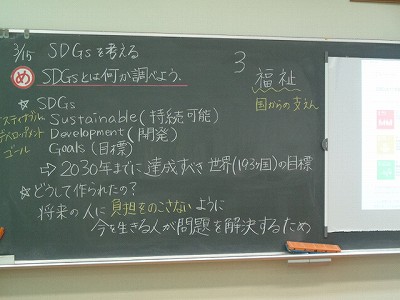 3/15 SDGsを考える
め SDGsとは何か調べよう、
☆ SDGs
サスティナブル Sustainable(持続可能)
デベロップメント Development(開発)
ゴール Goals(目標)
⇨2030年までに達成すべき世界(193カ国)の目標
☆どうして作られたの?
将来の人に負担をのこさないように
今を生きる人が問題を解決するため
3
福祉
国からの支えん